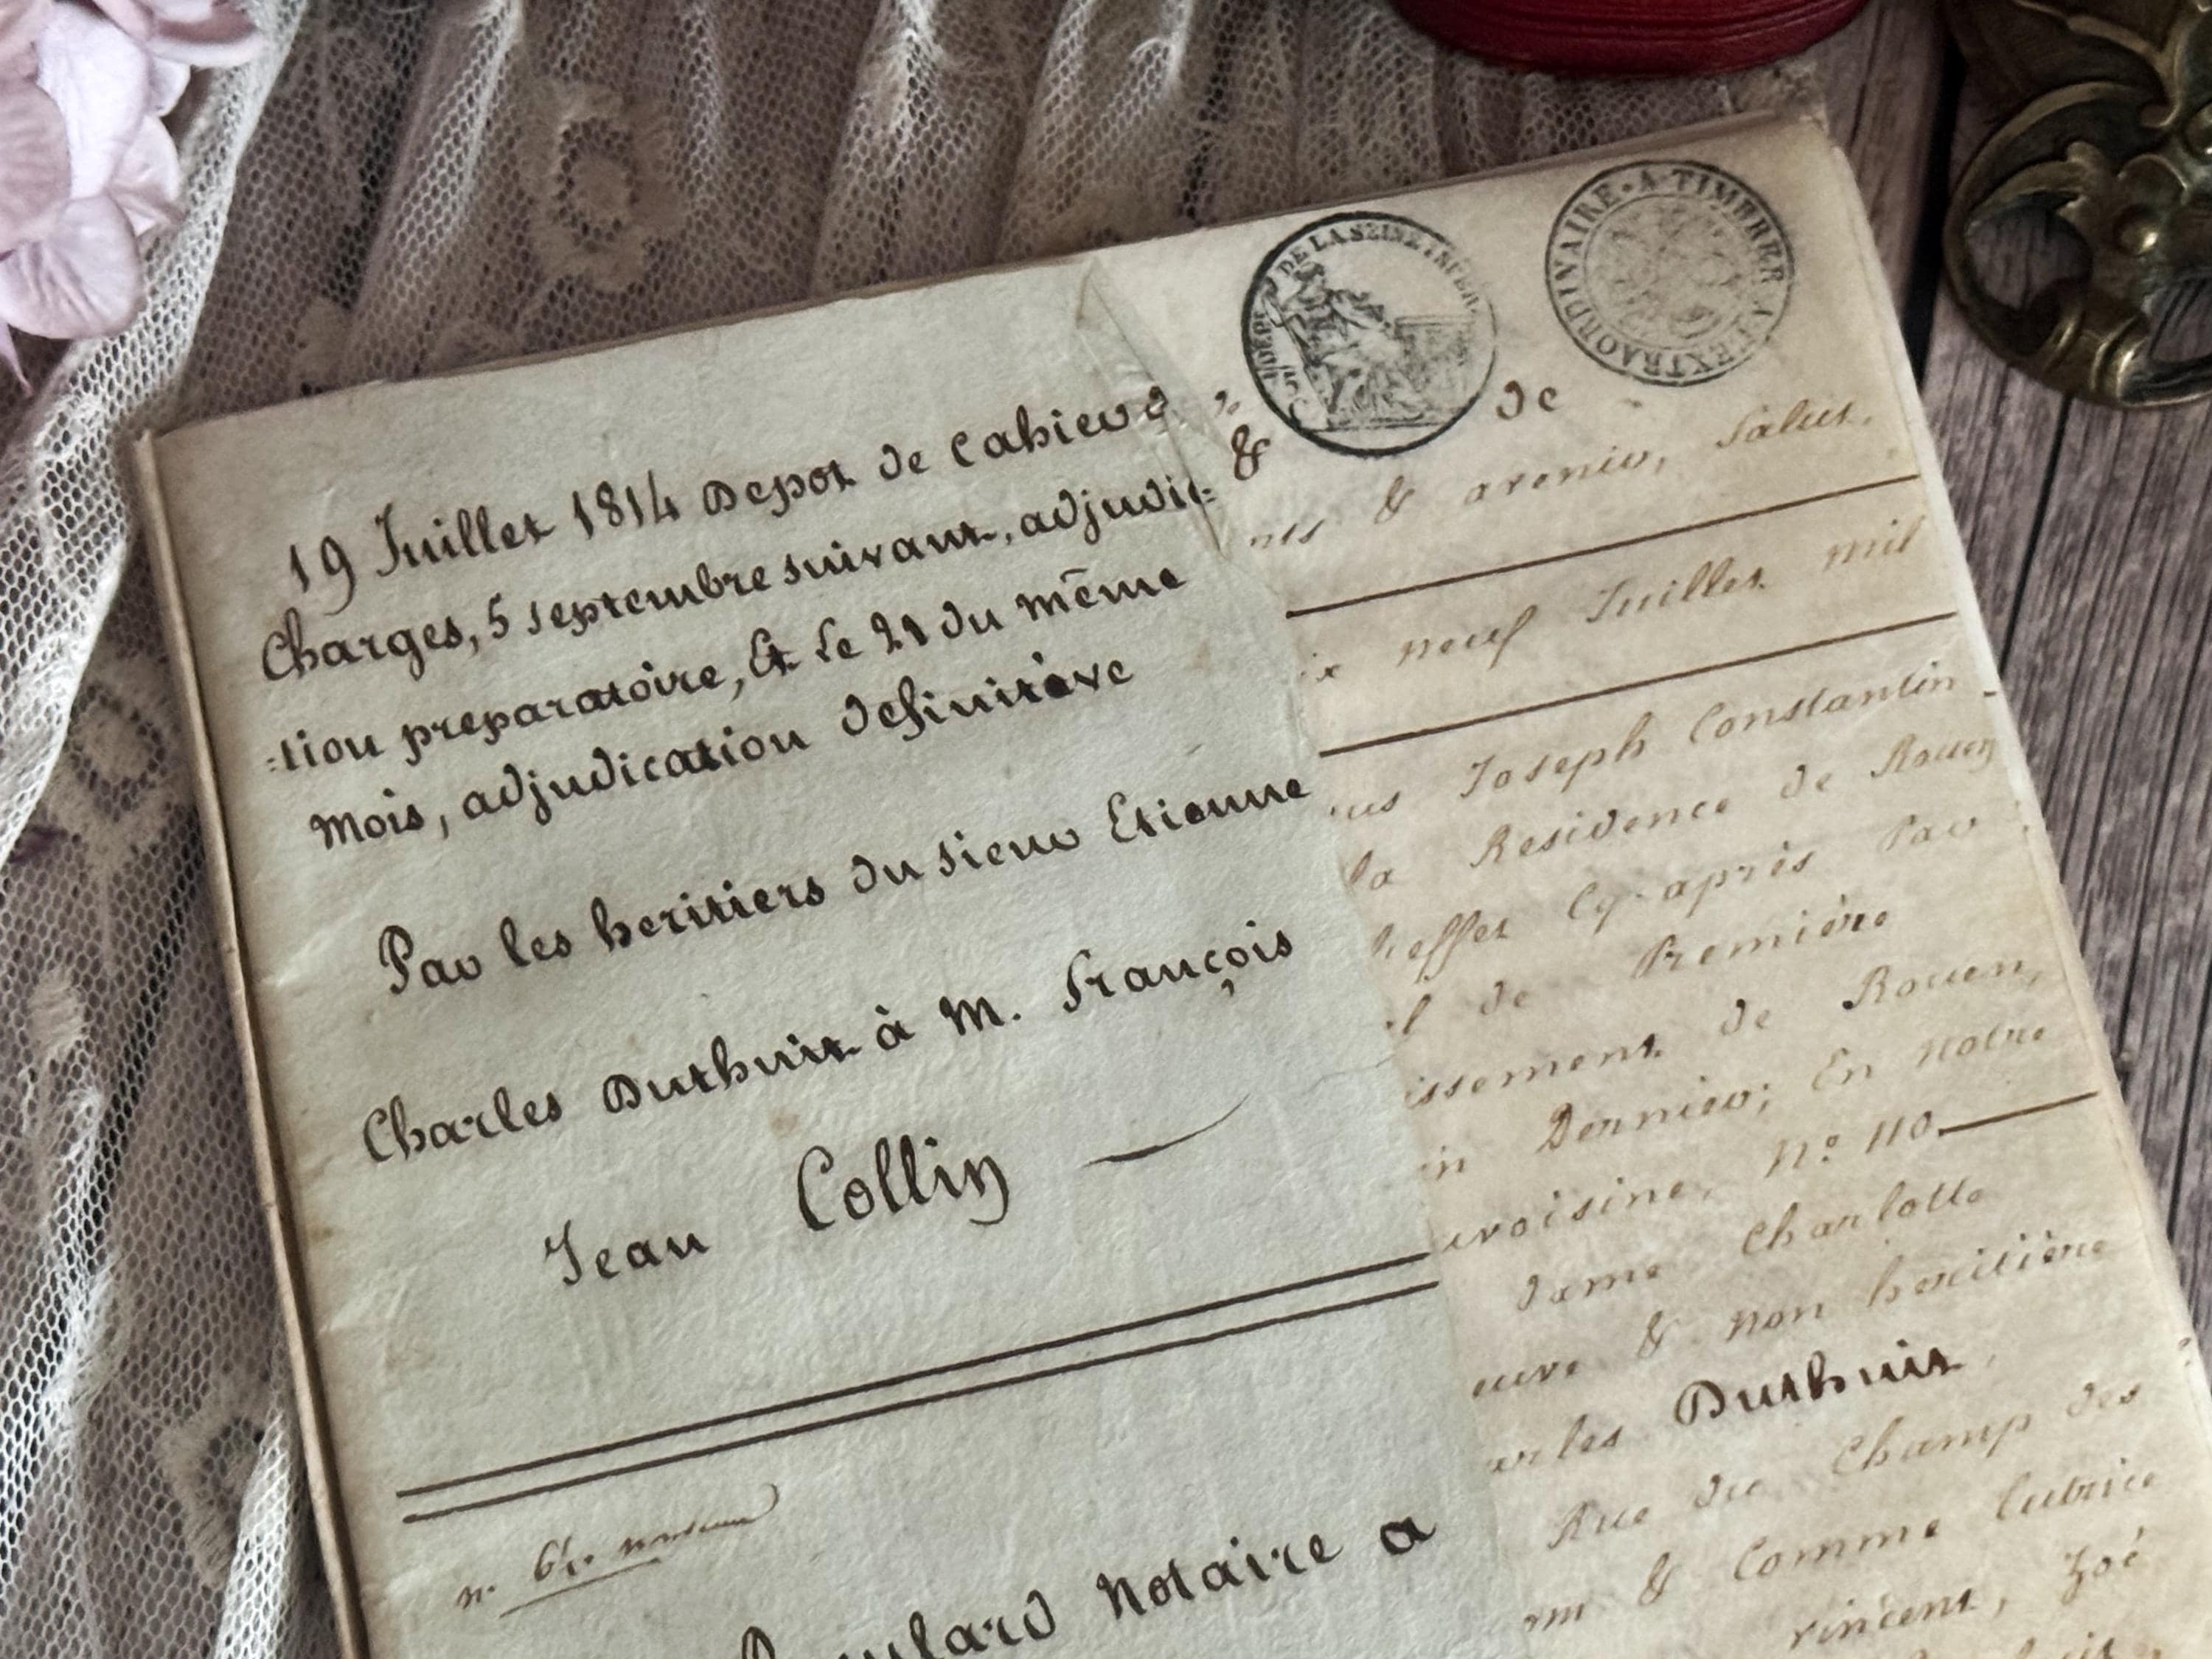 19 Juillet 1814 Depot de Cahier d
Charges, 5 septembre suivant, adjudic=
=tion preparatoire, Et Le 21 du même
mois, adjudication definitive
Par les heritiers du sieur Etienne
Charles Duthuit à M. François
Jean Collin
n.
Notaire a
DE LA SEINE INFER.
A TIMBRER A L'EXTRAORDINAIRE
de
&
& avenir, Salut.
neuf Juillet mil
Joseph Constantin
la Residence de Rouen
Cy-après Par
de Première
issement de Rouen,
Dernier; En Notre
N.º 110
Dame Charlotte
& non heritière
arles Duthuit
Rue du Champ des
& Comme tutrice
vincent, Zoé